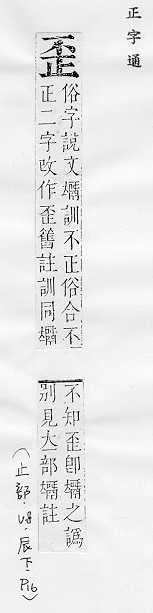 正字通
歪
俗字說文𥏻訓不正俗合不
正二字改作歪舊註訓同𥏻
不知歪卽𥏻之譌
別見立部𥏻註
(止部.辰下.P16)